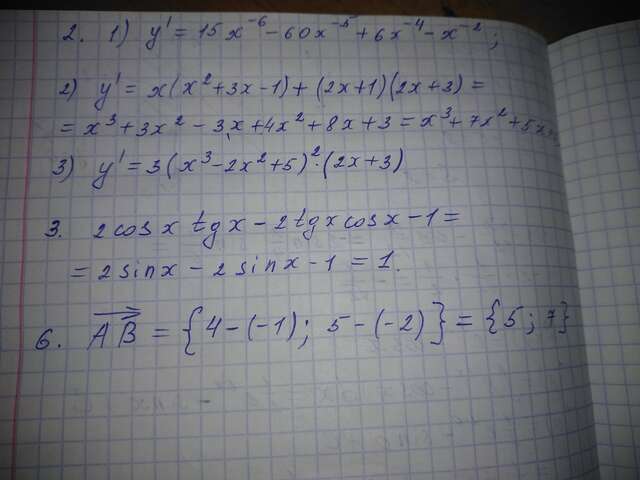 2. 1) y' = 15x⁻⁶ - 60x⁻⁵ + 6x⁻⁴ - x⁻²;
2) y' = x(x² + 3x - 1) + (2x + 1)(2x + 3) =
= x³ + 3x² - 3x + 4x² + 8x + 3 = x³ + 7x² + 5x
3) y' = 3(x³ - 2x² + 5)² · (2x + 3)
3. 2cos x tg x - 2tg x cos x - 1 =
= 2 sin x - 2 sin x - 1 = 1.
6. AB = {4 - (-1); 5 - (-2)} = {5; 7}